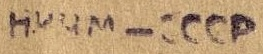 НИИМ-СССР